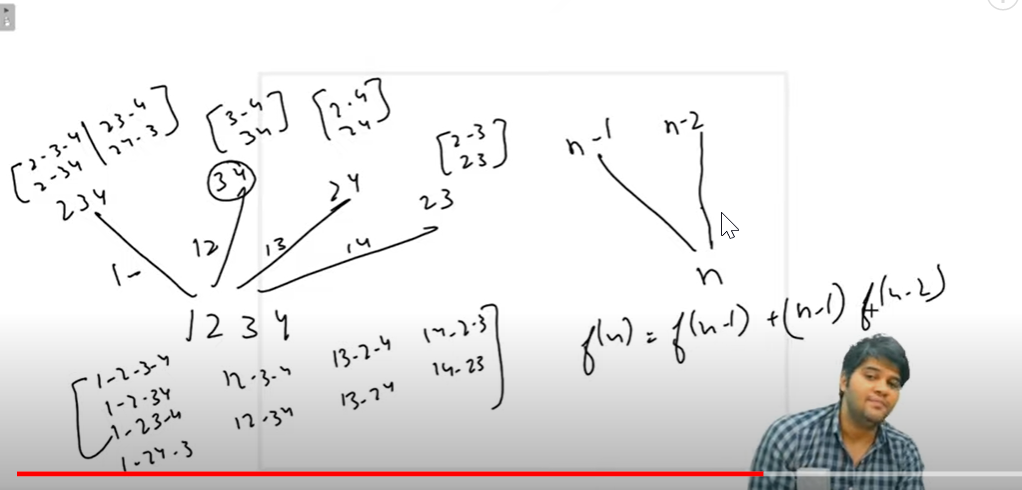 [2-3-4 | 23-4
2-34 | 24-3]
[3-4
34]
[2-4
24]
[2-3
23]
234
34
24
23
1-
12
13
14
1 2 3 4
[1-2-3-4 12-3-4 13-2-4 14-2-3]
1-2-34 12-34 13-24 14-23
1-23-4
1-24-3
n-1
n-2
n
f(n) = f(n-1) + (n-1) f(n-2)